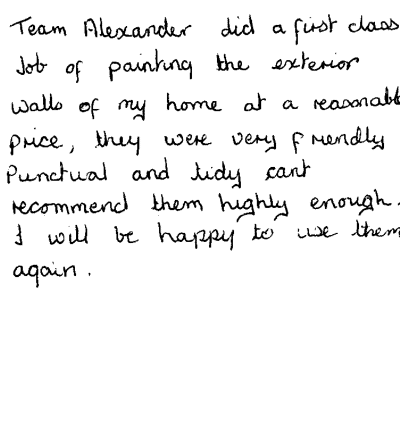 Team Alexander did a first class
Job of painting the exterior
walls of my home at a reasonabl
price, they were very friendly
Punctual and tidy cant
recommend them highly enough.
I will be happy to use them
again.